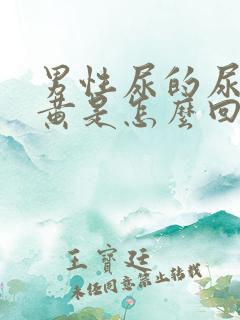 男性尿的尿
黄是怎麼回
王寶廷
未经同意禁止转载